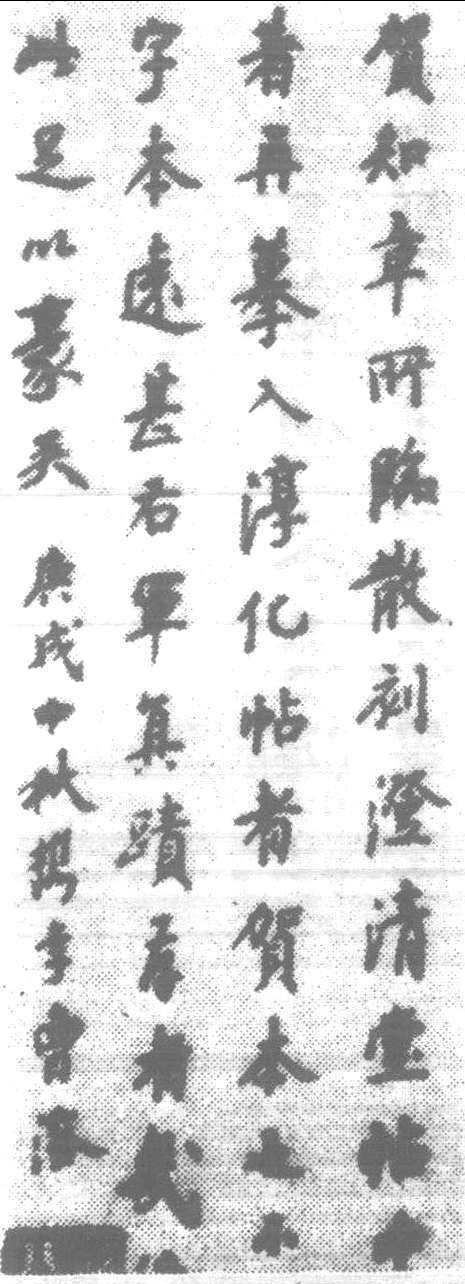 賀知章所臨散刻澄清堂帖中
者再摹入淳化帖者賀本上十
字本遠甚右軍真蹟存世
此足以豪矣 庚戌中秋携李曾